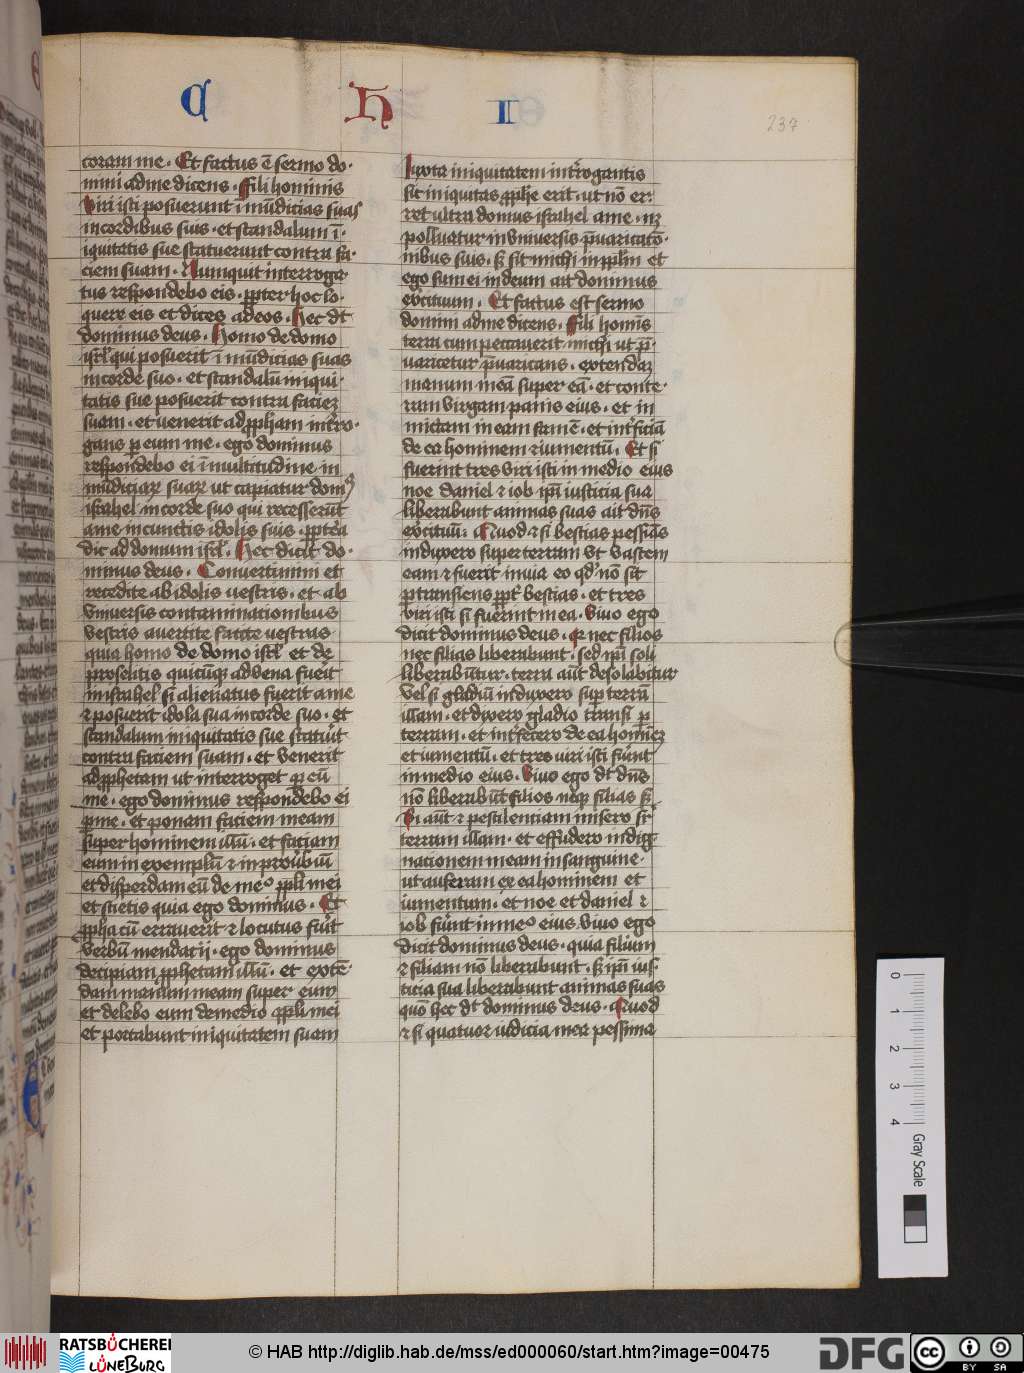 C H I
237
coram me. Et factus ē sermo do-
mini ad me dicens. Fili hominis
Viri isti posuerunt ī mūdicias suas
in cordibus suis. et scandalum ī-
iquitatis sue statuerunt contra fa-
ciem suam. Nunquit interroga-
tus respondebo eis. ꝓpter hoc lo-
quere eis et dices ad eos. Hec dt̄
dominus deus. Homo de domo
isrl̄ qui posuerit ī mūdicias suas
in corde suo. et scandalū iniqui-
tatis sue posuerit contra faciez
suam. et venerit ad ꝓpham int̄ro-
gans ꝑ eum me. ego dominus
respondebo ei ī multitudine in
mūdiciaꝝ suaꝝ ut capiatur domꝰ
israhel in corde suo qui recesserūt
a me in cunctis idolis suis. ꝓpt̄ea
dic ad domum isrl̄. Hec dicit do-
minus deus. Convertimini et
recedite ab idolis vestris. et ab
Vniversis contaminationibus
vestris avertite facie vestras
quia homo de domo isrl̄ et de
proselitis quicūqꝫ advena fuerit
in israhel si alienatus fuerit a me
⁊ posuerit idola sua in corde suo. et
scandalum iniquitatis sue statuīt
contra faciem suam. et venerit
ad ꝓphetam ut interroget ꝑ eū
me. ego dominus respondebo ei
ꝑ me. et ponam faciem meam
super hominem illū. et faciam
eum in exemplū ⁊ in ꝓūbiū
et disperdam eū de meo ppl̄i mei
et scietis quia ego dominus. Et
ꝓpha cū erraverit ⁊ locutus fuīt
verbū mendacii. ego dominus
decipiam ꝓphetam illū. et extē-
dam manum meam super eum
et delebo eum de medio ppl̄i mei
et portabunt iniquitatem suam
Iuxta iniquitatem int̄rogantis
sic iniquitas ꝓphe erit. ut nō er-
ret ultra domus israhel a me. nꝫ
polluatur in Vniversis p̄varicatō-
nibus suis. sꝫ sit michi in ppl̄m et
ego sum ei in deum ait dominus
exercituum. Et factus est sermo
domini ad me dicens. Fili homīs
terra cum peccaverit michi ut p̄-
varicetur p̄varicans. extendaꝫ
manum meā super eā. et conte-
ram virgam panis eius. et in
mictam in eam famē. et int̄ficiā
de ea hominem ⁊ iumentū. Et si
fuerint tres viri isti in medio eius
noe daniel ⁊ iob ip̄i iusticia sua
liberabunt animas suas ait dn̄s
exercituū. Quod ⁊ si bestias pessiās
induxero super terram Vt vastem
eam ⁊ fuerit invia eo qd̓ nō sit
ꝑtransiens ꝓpt̄ bestias. et tres
viri isti si fuerint in ea. Vivo ego
dicit dominus deus. qꝛ nec filios
nec filias liberabunt. sed ip̄i soli
liberabūtur. terra aūt desolabitur
Vel si gladiū induxero suꝑ terrā
illam. et dixero gladio transi ꝑ
terram. et int̄fecero de ea homineꝫ
et iumentū. et tres viri isti fuīnt
in medio eius. Vivo ego dt̄ dn̄s
nō liberabūt filios neqꝫ filias sꝫ
Si aūt ⁊ pestilentiam misero sr̄
terram illam. et effudero indig-
nationem meam in sanguine-
ut auferam ex ea hominem et
iumentum. et noe et daniel ⁊
iob fuīnt in meo eius vivo ego
dicit dominus deus. quia filium
⁊ filiam nō liberabunt. sꝫ ip̄i ius-
ticia sua liberabunt animas suas
quō hec dt̄ dominus deus. Quod
⁊ si quatuor iudicia mea pessima
0
1
2
3
4
Gray Scale
RATSBÜCHEREI
LÜNEBURG
© HAB http://diglib.hab.de/mss/ed000060/start.htm?image=00475
DFG
cc BY SA